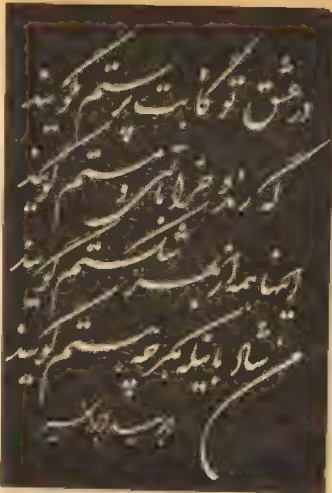 در عشق تو گاه بت پرستم گویند
گه رند و خراباتی و مستم گویند
اینها همه از بهر شکستم گویند
من شاد باینکه هرچه هستم گویند
ابوسعید ابوالخیر